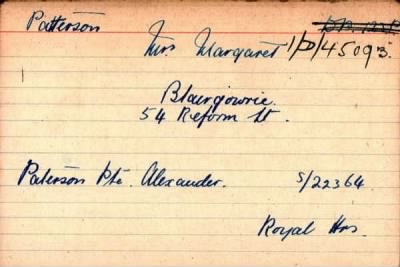 Patterson
Mrs. Margaret 1/D/45093.
Blairgowrie.
54 Reform St.
Paterson Pte. Alexander. S/22364
Royal Hrs